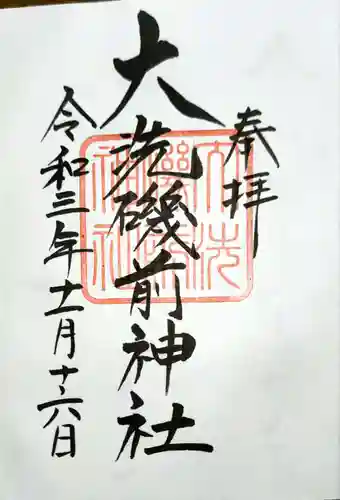 奉拝
大洗磯前神社
令和三年十一月十六日